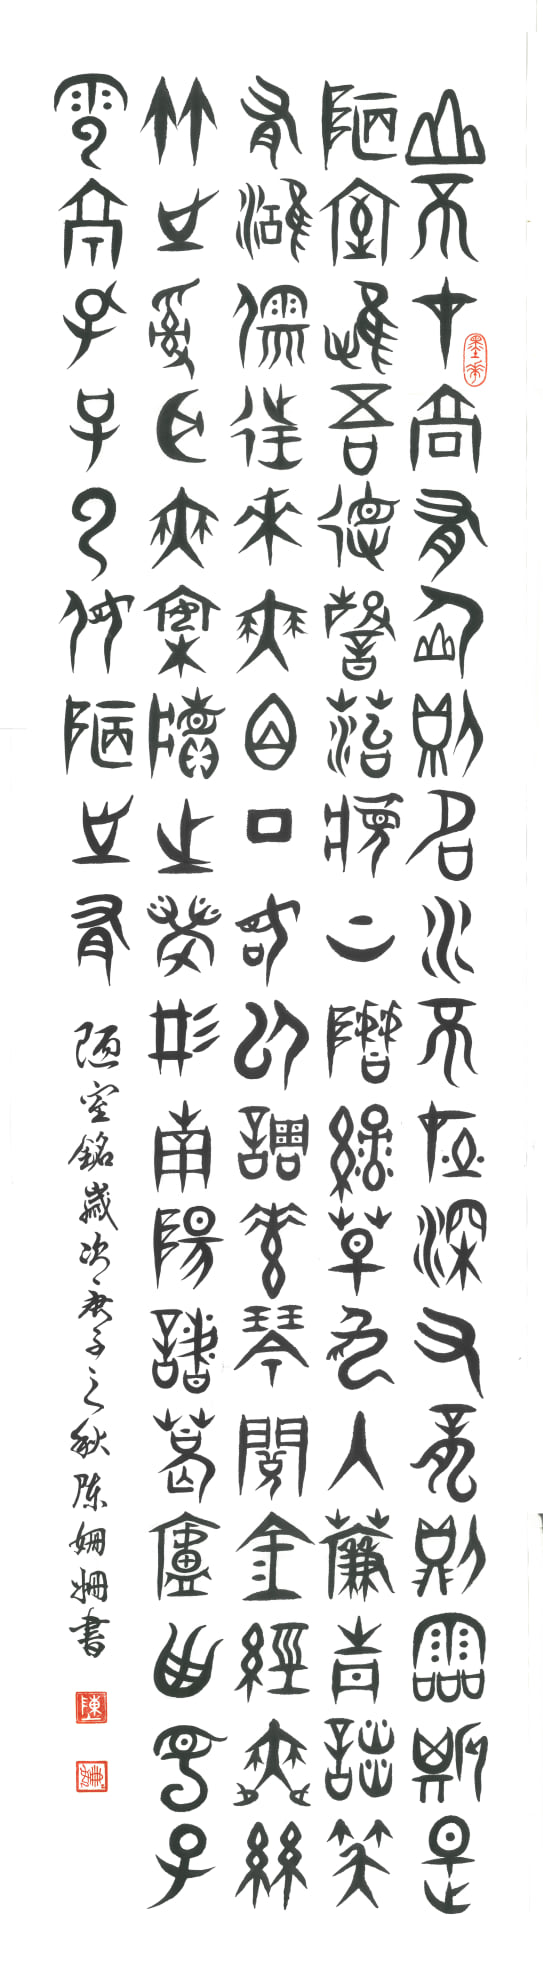 山不在高有仙則名水不在深有龍則靈斯是
陋室唯吾德馨苔痕上階綠草色入簾青談笑
有鴻儒往來無白丁可以調素琴閱金經無絲
竹之亂耳無案牘之勞形南陽諸葛廬西蜀子
雲亭孔子云何陋之有
陋室銘歲次庚子之秋陳姍姍書
陳